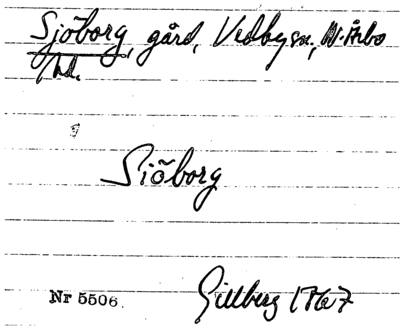 Sjöborg, gård, Vedbysn., N. Åsbo
hd.
Siöborg
Nr 5506. Gillberg 1767